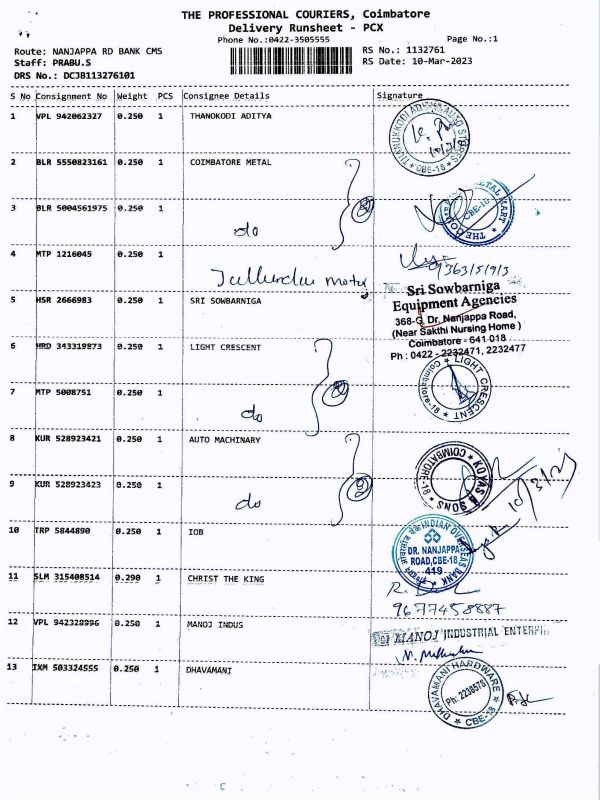 THE PROFESSIONAL COURIERS, Coimbatore
Delivery Runsheet - PCX
Phone No.:0422-3505555
Page No.:1
Route: NANJAPPA RD BANK CMS
RS No.: 1132761
Staff: PRABU.S
RS Date: 10-Mar-2023
DRS No.: DCJB113276101
S No Consignment No Weight PCS Consignee Details Signature
1 VPL 942062327 0.250 1 THANOKODI ADITYA
THANUKKODI ADITYA AUTO STORES
CBE-18
2 BLR 5550823161 0.250 1 COIMBATORE METAL
3 BLR 5004561975 0.250 1 do
METAL MART
CBE-18
4 MTP 1216045 0.250 1
5 HSR 2666983 0.250 1 SRI SOWBARNIGA
Sri Sowbarniga
Equipment Agencies
368-G, Dr. Nanjappa Road,
(Near Sakthi Nursing Home)
Coimbatore - 641 018
Ph : 0422 - 2232471, 2232477
6 HRD 343319873 0.250 1 LIGHT CRESCENT
LIGHT CRESCENT
Coimbatore-18
7 MTP 5008751 0.250 1 do
8 KUR 528923421 0.250 1 AUTO MACHINARY
KOVAS & SONS
COIMBATORE-18
9 KUR 528923423 0.250 1 do
10/3/23
10 TRP 5844890 0.250 1 IOB
INDIAN OVERSEAS BANK
DR. NANJAPPA
ROAD, CBE-18
419
11 SLM 315408514 0.290 1 CHRIST THE KING
9677458887
12 VPL 942328996 0.250 1 MANOJ INDUS
MANOJ INDUSTRIAL ENTERPRI
13 IXM 503324555 0.250 1 DHAVAMANI
DHAVAMANI HARDWARE
Ph: 2238576
CBE-18